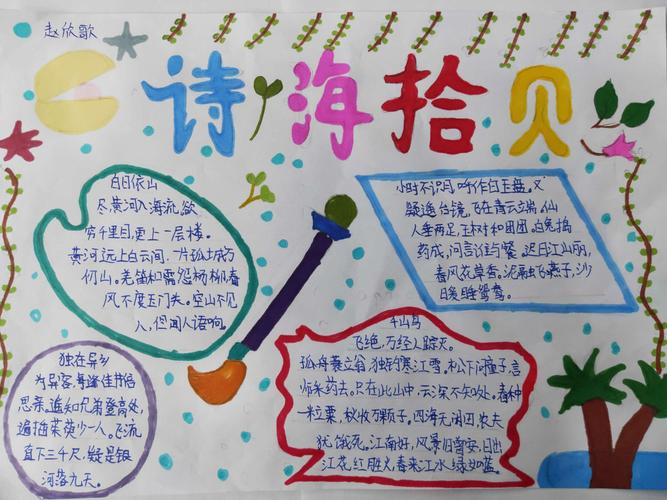 赵欣歌
诗海拾贝
白日依山
尽黄河入海流,欲
穷千里目,更上一层楼。
黄河远上白云间,一片孤城万
仞山。羌笛何需怨杨柳,春
风不度玉门关。空山不见
人,但闻人语响。
小时不识月,呼作白玉盘。又
疑瑶台镜,飞在青云端。仙
人垂两足,玉树何团团。白兔捣
药成,问言谁与餐。迟日江山丽,
春风花草香。泥融飞燕子,沙
日暖睡鸳鸯。
独在异乡
为异客,每逢佳节倍
思亲。遥知兄弟登高处,
遍插茱萸少一人。飞流
直下三千尺,疑是银
河落九天。
千山鸟
飞绝,万径人踪灭。
孤舟蓑笠翁,独钓寒江雪。松下问童子,言
师采药去。只在此山中,云深不知处。春种
一粒粟,秋收万颗子。四海无闲田,农夫
犹饿死。江南好,风景旧曾安,日出
江花红胜火,春来江水绿如蓝。